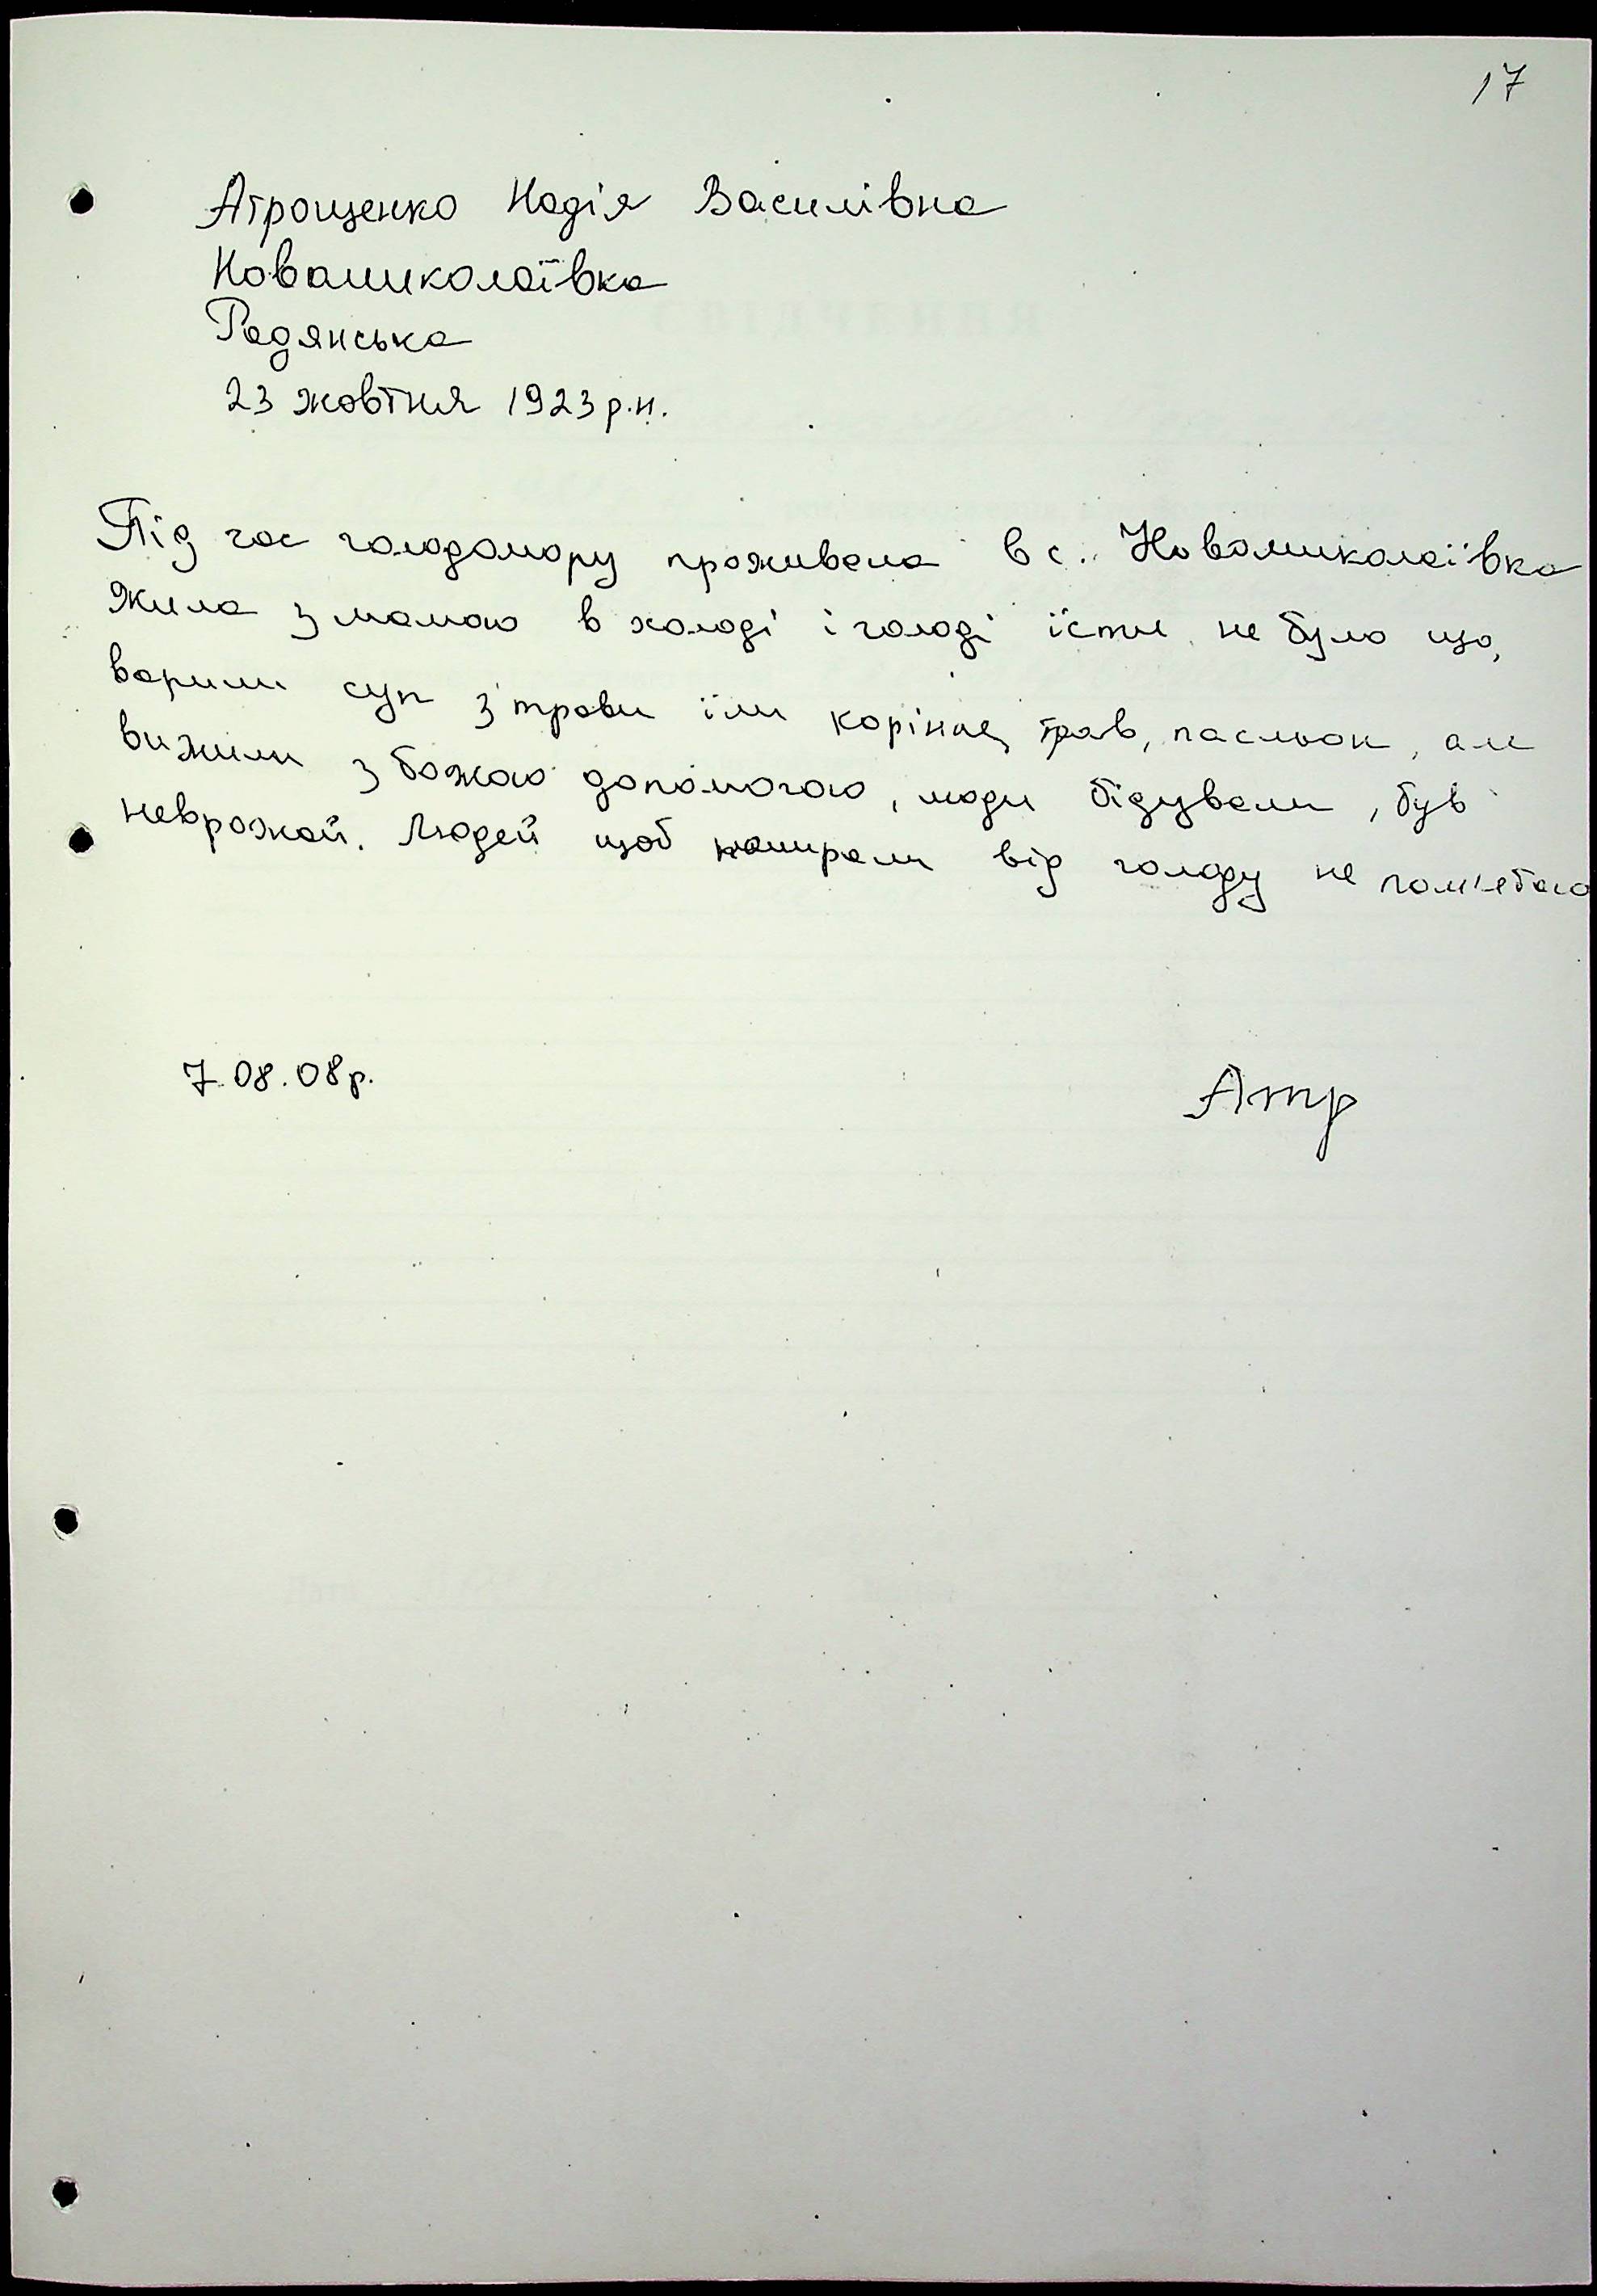 17
Атрощенко Надія Василівна
Новомиколаївка
Радянська
23 жовтня 1923 р.н.
Під час голодомору проживала в с. Новомиколаївка
жила з мамою в холоді і голоді їсти не було що,
варили суп з трави їли коріння трав, пасльон, але
вижили з божою допомогою, люди бідували, був
неврожай. Людей щоб помирали від голоду не пам'ятаю
7.08.08р.
Атр